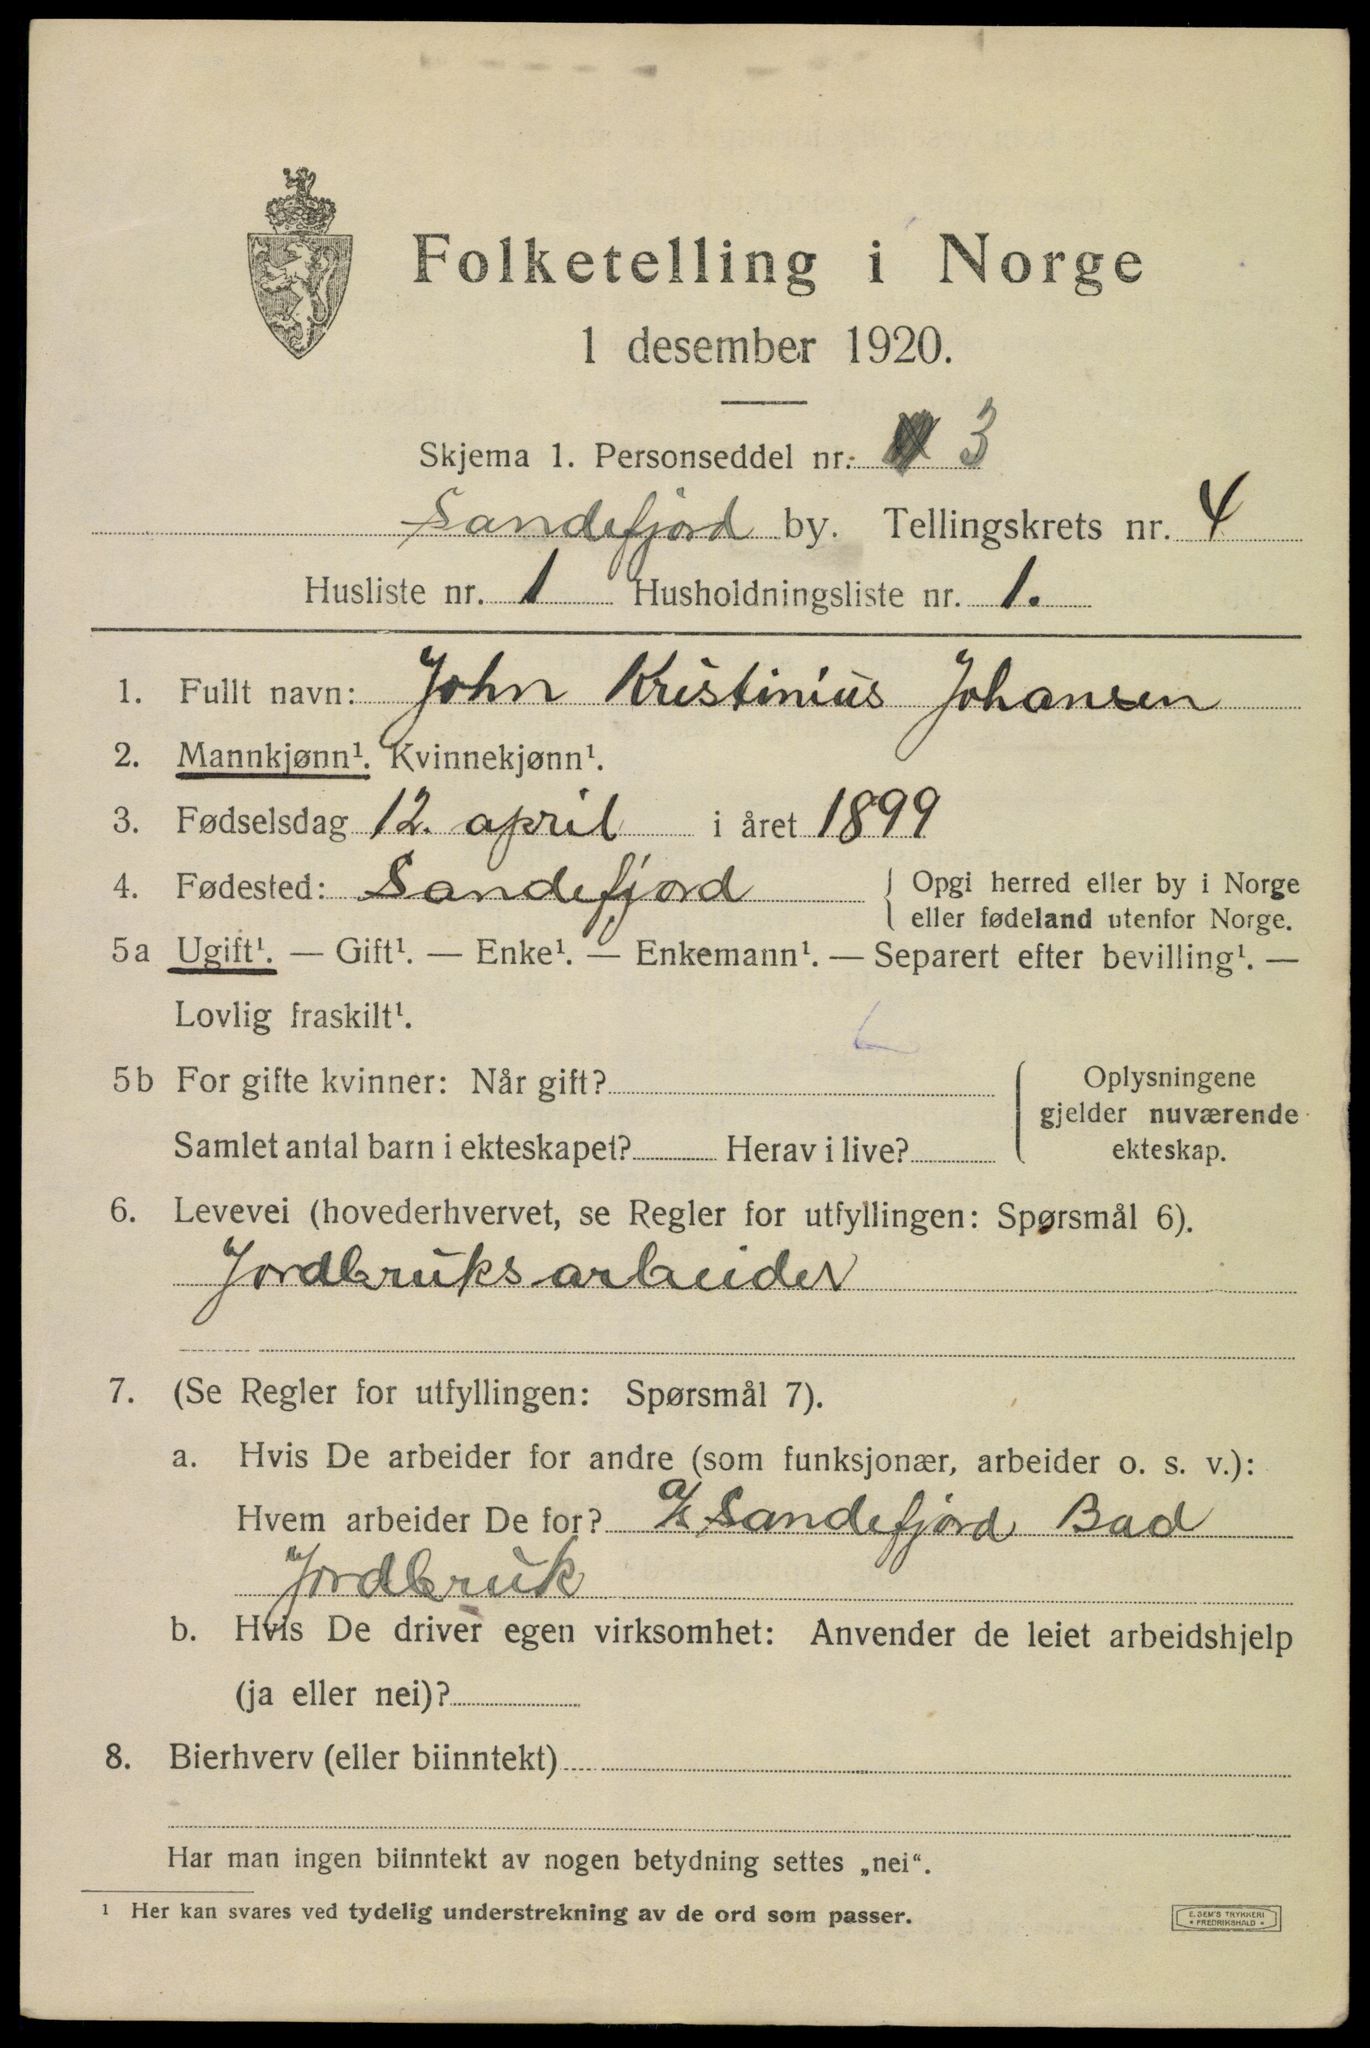 Folketelling i Norge
1 desember 1920.
Skjema 1. Personseddel nr. 3
Sandefjord by. Tellingskrets nr. 4
Husliste nr. 1 Husholdningsliste nr. 1.
1. Fullt navn: John Kristinius Johansen
2. Mannkjønn¹. Kvinnekjønn¹.
3. Fødselsdag 12. april i året 1899
4. Fødested: Sandefjord { Opgi herred eller by i Norge
eller fødeland utenfor Norge.
5a Ugift¹. — Gift¹. — Enke¹. — Enkemann¹. — Separert efter bevilling¹. —
Lovlig fraskilt¹.
5b For gifte kvinner: Når gift?
Samlet antal barn i ekteskapet? Herav i live?
Oplysningene
gjelder nuværende
ekteskap.
6. Levevei (hovederhvervet, se Regler for utfyllingen: Spørsmål 6).
Jordbruksarbeider
7. (Se Regler for utfyllingen: Spørsmål 7).
a. Hvis De arbeider for andre (som funksjonær, arbeider o. s. v.):
Hvem arbeider De for? a/s Sandefjord Bad
Jordbruk
b. Hvis De driver egen virksomhet: Anvender de leiet arbeidshjelp
(ja eller nei)?
8. Bierhverv (eller biinntekt)
Har man ingen biinntekt av nogen betydning settes „nei“.
¹ Her kan svares ved tydelig understrekning av de ord som passer.
E. SEM'S TRYKKERI
• FREDRIKSHALD •